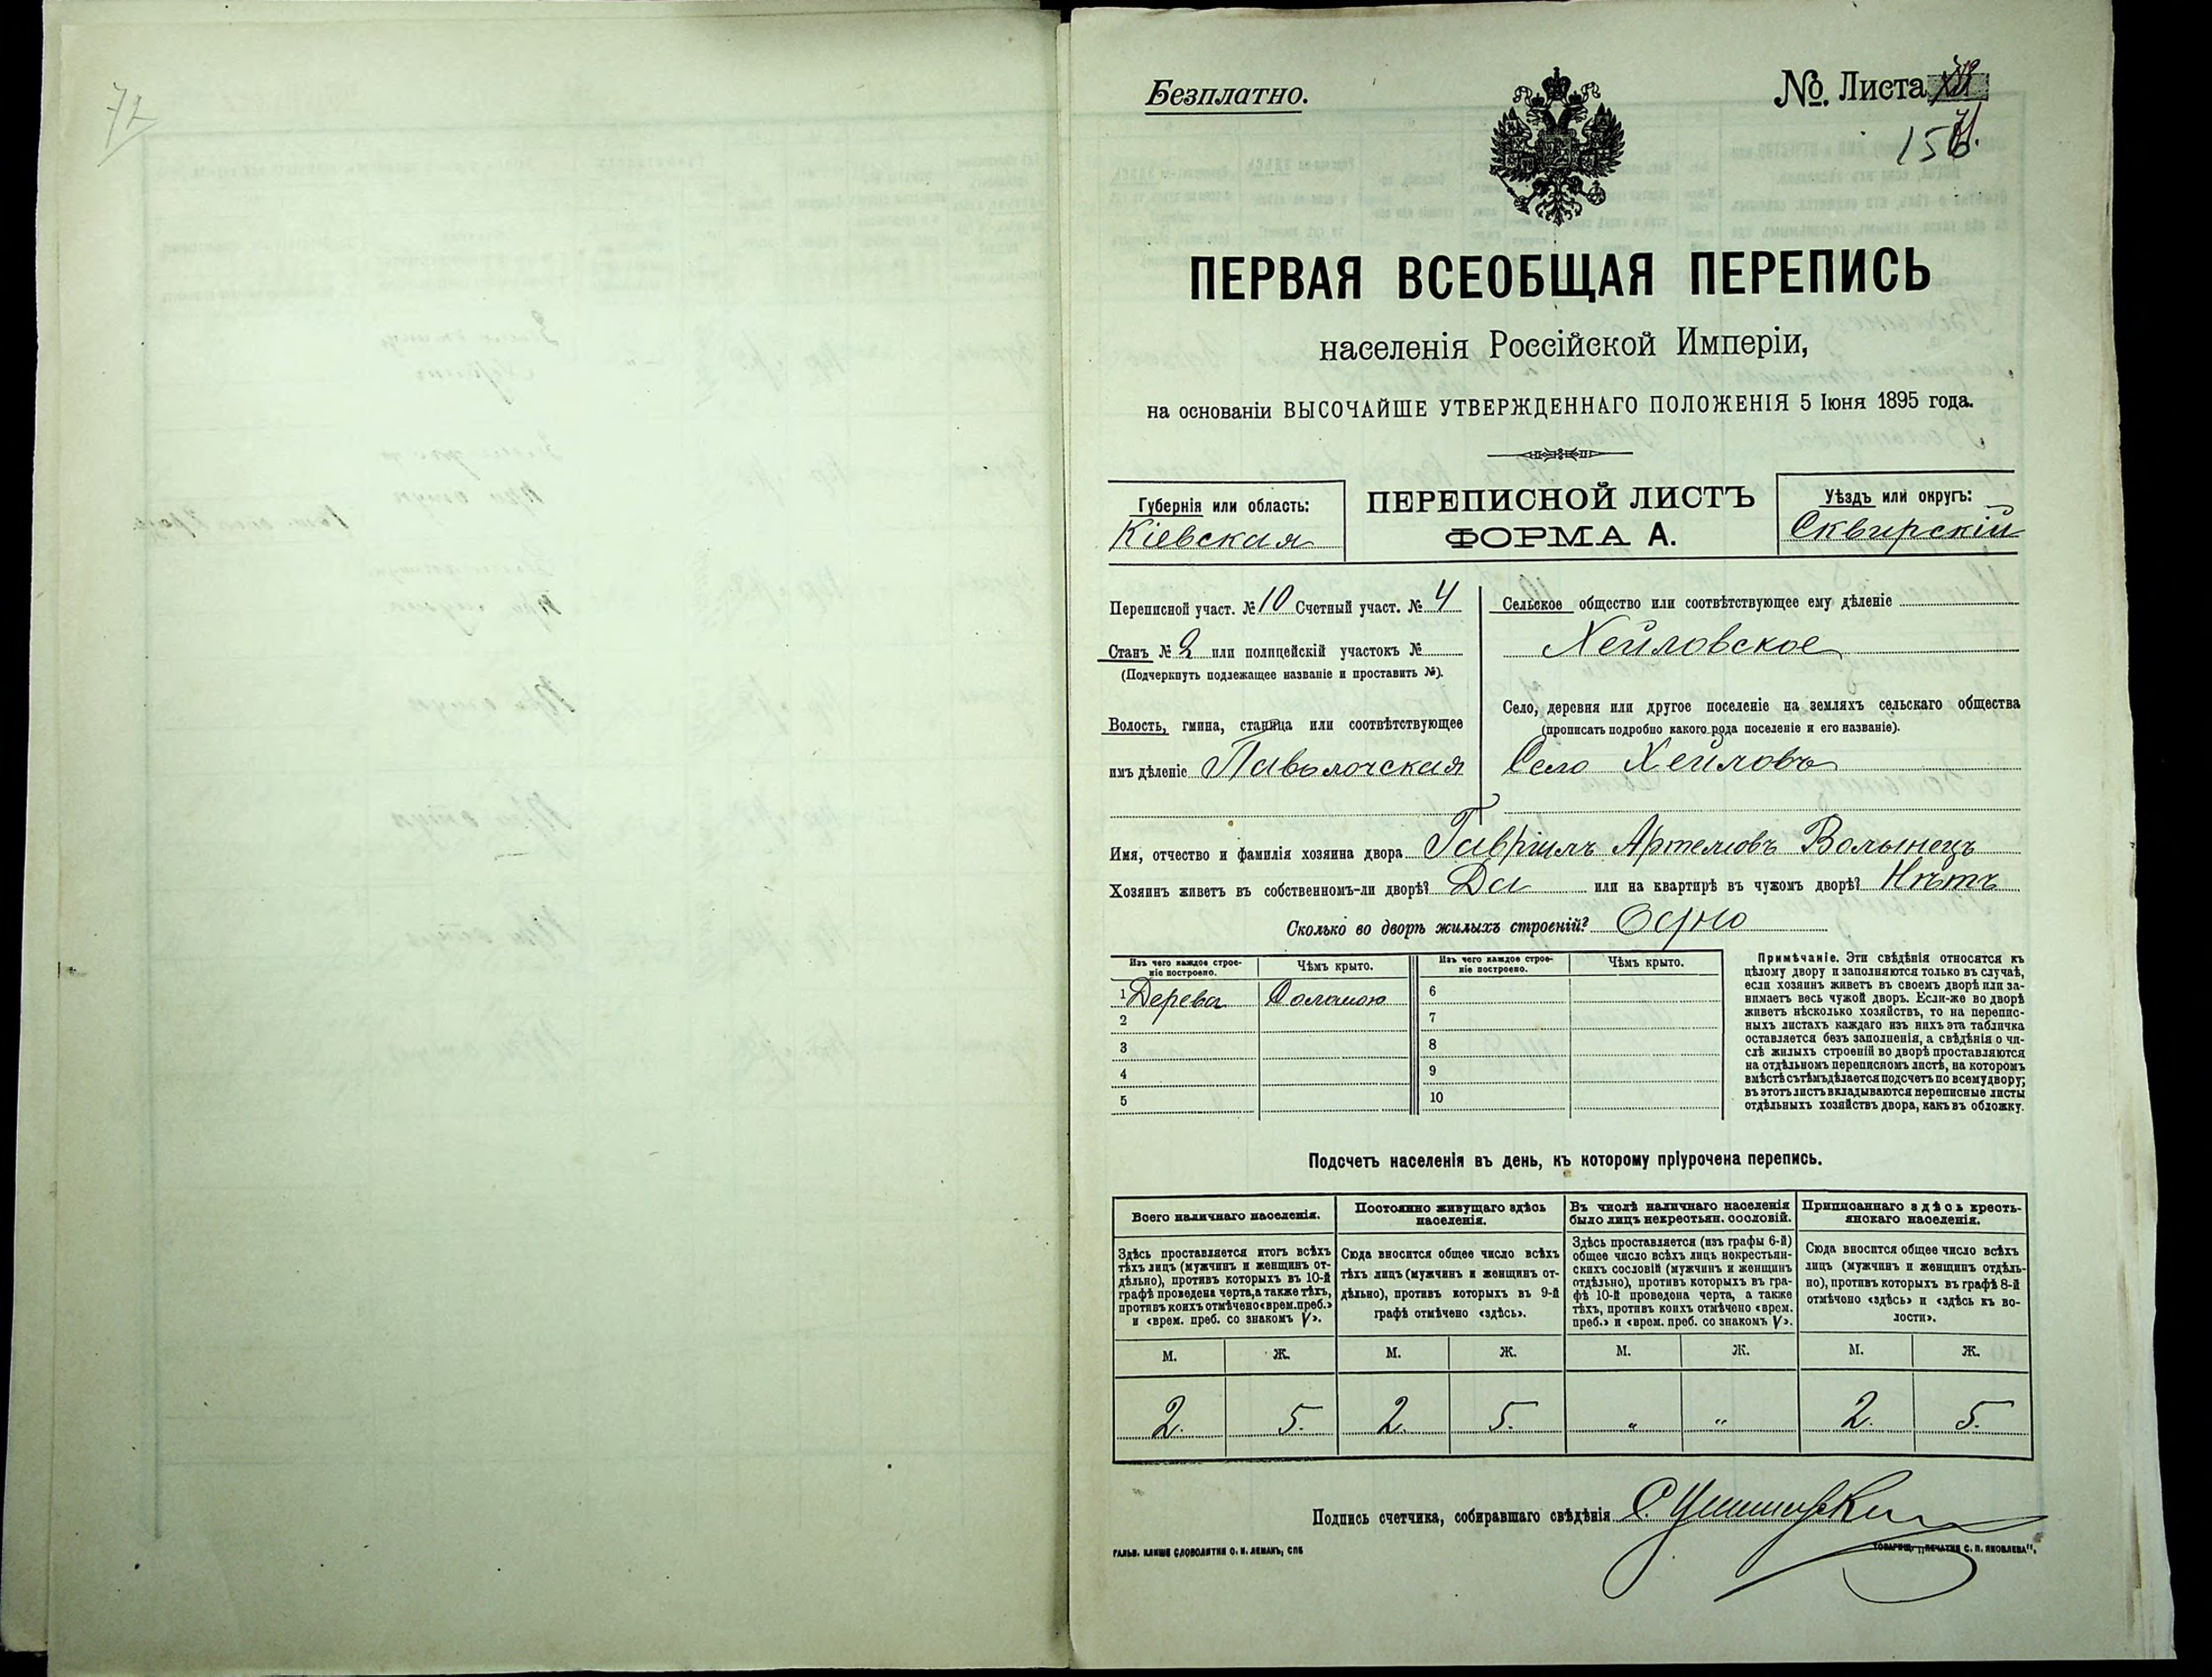 72
Безплатно.
№. Листа
ПЕРВАЯ ВСЕОБЩАЯ ПЕРЕПИСЬ
населенія Россійской Имперіи,
на основаніи ВЫСОЧАЙШЕ УТВЕРЖДЕННАГО ПОЛОЖЕНІЯ 5 Іюня 1895 года.
Губернія или область:
Кіевская
ПЕРЕПИСНОЙ ЛИСТЪ
ФОРМА А.
Уѣздъ или округъ:
Сквирскій
Переписной участ. № 10 Счетный участ. № 4
Станъ № 2 или полицейскій участокъ №
(Подчеркнуть подлежащее названіе и проставить №).
Волость, гмина, станица или соотвѣтствующее
имъ дѣленіе Паволочская
Сельское общество или соотвѣтствующее ему дѣленіе
Хейловское
Село, деревня или другое поселеніе на земляхъ сельскаго общества
(прописать подробно какого рода поселеніе и его названіе).
Село Хейловъ
Имя, отчество и фамилія хозяина двора Гавріилъ Артемовъ Волынецъ
Хозяинъ живетъ въ собственномъ-ли дворѣ? Да или на квартирѣ въ чужомъ дворѣ? Нѣтъ
Сколько во дворѣ жилыхъ строеній? Одно
Изъ чего каждое строе-
ніе построено.
Чѣмъ крыто.
Изъ чего каждое строе-
ніе построено.
Чѣмъ крыто.
1 Дерева Соломою 6
2 7
3 8
4 9
5 10
Примѣчаніе. Эти свѣдѣнія относятся къ
цѣлому двору и заполняются только въ случаѣ,
если хозяинъ живетъ въ своемъ дворѣ или за-
нимаетъ весь чужой дворъ. Если-же во дворѣ
живетъ нѣсколько хозяйствъ, то на перепис-
ныхъ листахъ каждаго изъ нихъ эта табличка
оставляется безъ заполненія, а свѣдѣнія о чи-
слѣ жилыхъ строеній во дворѣ проставляются
на отдѣльномъ переписномъ листѣ, на которомъ
вмѣстѣ съ тѣмъ дѣлается подсчетъ по всему двору;
въ этотъ листъ вкладываются переписные листы
отдѣльныхъ хозяйствъ двора, какъ въ обложку.
Подсчетъ населенія въ день, къ которому пріурочена перепись.
Всего наличнаго населенія.
Здѣсь проставляется итогъ всѣхъ
тѣхъ лицъ (мужчинъ и женщинъ от-
дѣльно), противъ которыхъ въ 10-й
графѣ проведена черта, а также тѣхъ,
противъ коихъ отмѣчено «врем. преб.»
и «врем. преб. со знакомъ V».
Постоянно живущаго здѣсь
населенія.
Сюда вносится общее число всѣхъ
тѣхъ лицъ (мужчинъ и женщинъ от-
дѣльно), противъ которыхъ въ 9-й
графѣ отмѣчено «здѣсь».
Въ числѣ наличнаго населенія
было лицъ некрестьян. сословій.
Здѣсь проставляется (изъ графы 6-й)
общее число всѣхъ лицъ некрестьян-
скихъ сословій (мужчинъ и женщинъ
отдѣльно), противъ которыхъ въ гра-
фѣ 10-й проведена черта, а также
тѣхъ, противъ коихъ отмѣчено «врем.
преб.» и «врем. преб. со знакомъ V».
Приписаннаго здѣсь кресть-
янскаго населенія.
Сюда вносится общее число всѣхъ
лицъ (мужчинъ и женщинъ отдѣль-
но), противъ которыхъ въ графѣ 8-й
отмѣчено «здѣсь» и «здѣсь къ во-
лости».
М. Ж. М. Ж. М. Ж. М. Ж.
2. 5. 2. 5. " " 2. 5.
Подпись счетчика, собиравшаго свѣдѣнія
ГАЛЬВ. КЛИШЕ СЛОВОЛИТНИ О. И. ЛЕМАНЪ, СПБ
ТОВАРИЩ. „ПЕЧАТНЯ С. П. ЯКОВЛЕВА".